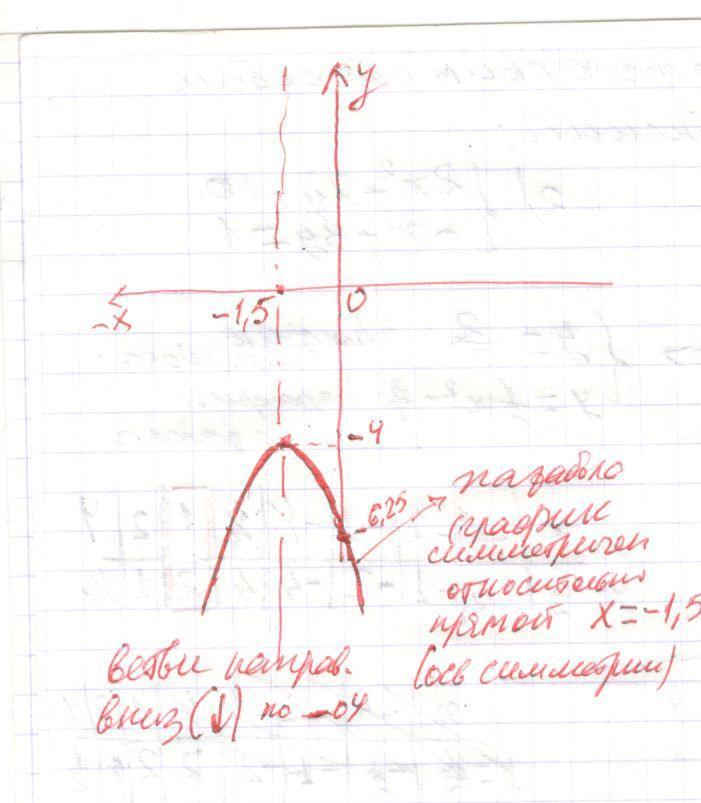 y
-x
-1,5
0
-4
-6,25
парабола
(график
симметричен
относительно
прямой x=-1,5
(ось симметрии)
ветви направ.
вниз (↓) по -оy